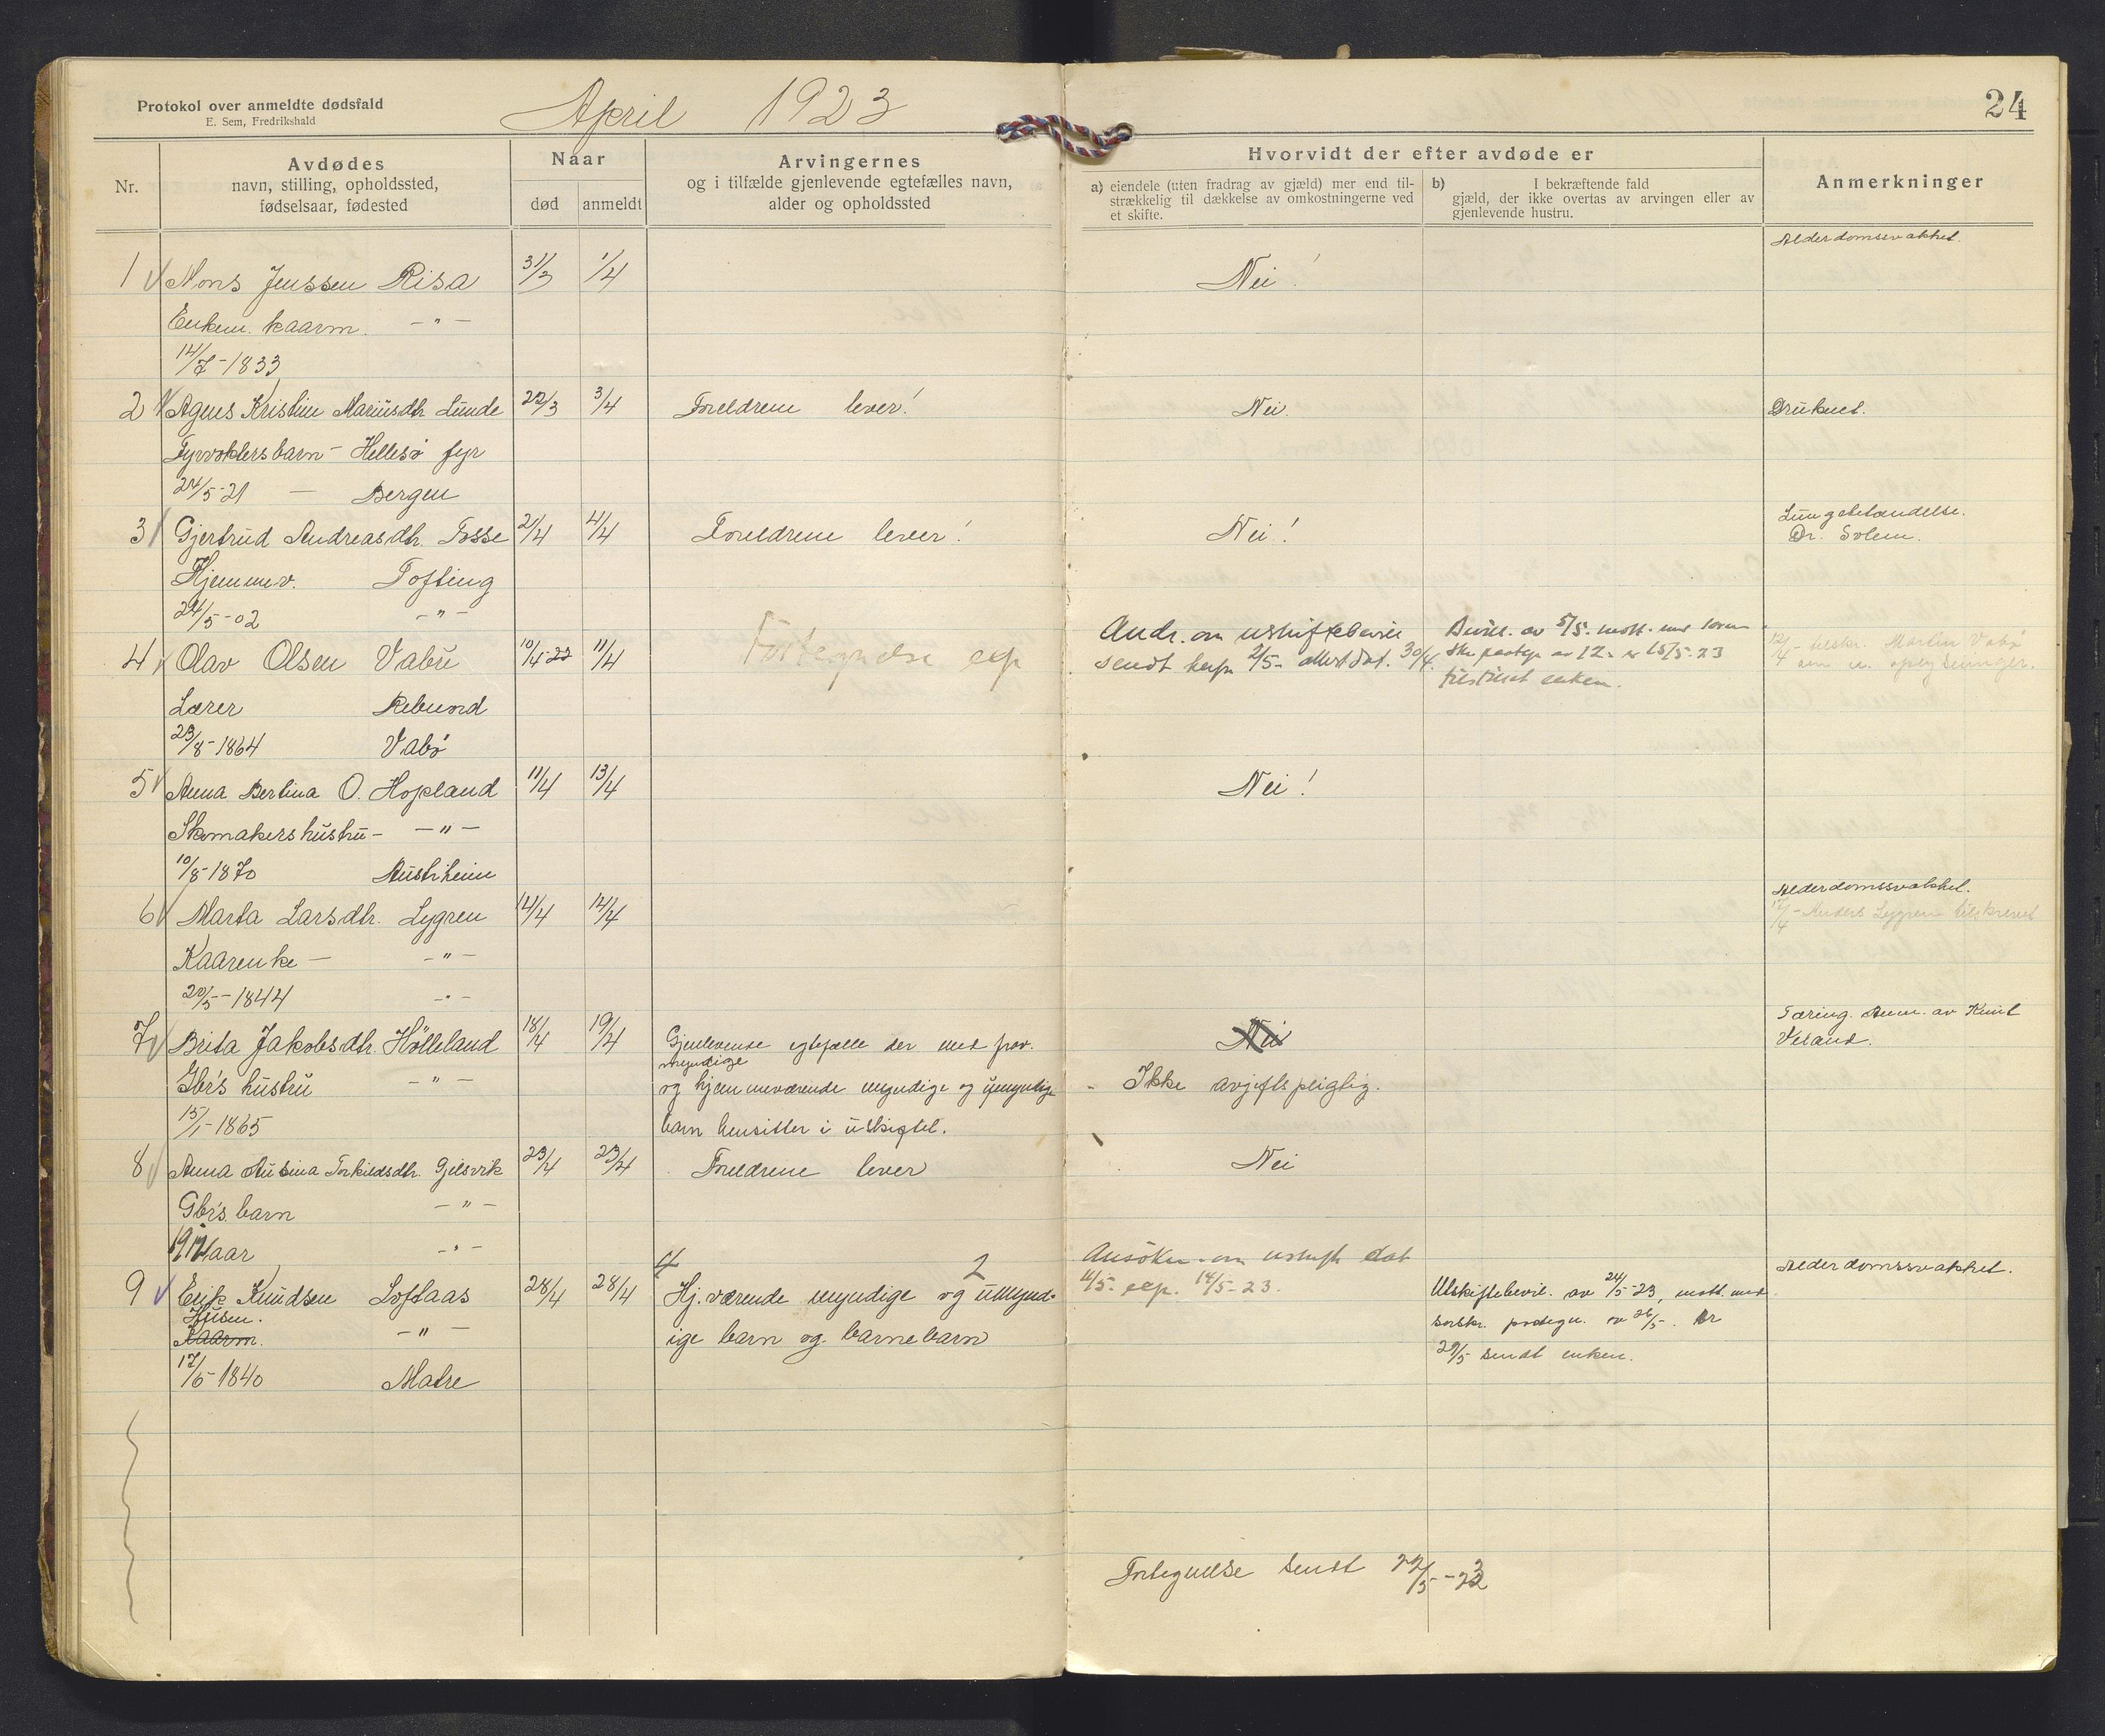 Protokol over anmeldte dødsfald
E. Sem, Fredrikshald
April 1923
24
Nr.
Avdødes
navn, stilling, opholdssted,
fødselsaar, fødested
Naar
død
anmeldt
Arvingernes
og i tilfælde gjenlevende egtefælles navn,
alder og opholdssted
Hvorvidt der efter avdøde er
a) eiendele (uten fradrag av gjæld) mer end til-
strækkelig til dækkelse av omkostningerne ved
et skifte.
b) I bekræftende fald
gjæld, der ikke overtas av arvingen eller av
gjenlevende hustru.
Anmerkninger
Alderdomssvakhet.
1 Mons Jenssen Risa 31/3 1/4 Nei!
Enkem. kaarm. - " -
14/7-1833
2 Agnes Kristine Mariusdtr Lunde 22/3 3/4 Foreldrene lever! Nei. Druknet.
Fyrvokters barn - Hellesø fyr
24/5-21 - Bergen
Lungebetændelse.
3 Gjertrud Andreasdtr. Fosse 2/4 4/4 Foreldrene lever! Nei! Dr. Solem.
Hjemmev. Tofting
24/5-02 - " -
Andr. om uskiftebevill
4 Olav Olsen Vabø 10/4-23 11/4 Fortegnelse exp sendt herfra 2/5- attest dat. 30/4.
Bevill. av 5/5. mott.
15/5-23
tilstillet enken.
12/4- tilskr. Martin Vabø
om n. oplysninger.
Lærer Rebund
23/8-1864 Vabø
5 Anna Bertina O. Hopland 11/4 13/4 Nei!
Skomakers hustru - - " -
10/8-1870 Austrheim
Alderdomssvakhet.
6 Marta Larsdtr. Lygren 14/4 14/4 17/4- Anders Lygren tilskrevet
Kaarenke - - " -
20/5-1844 - " -
Tæring. Anm. av Knut
7 Brita Jakobsdtr. Hölleland 18/4 19/4 Gjenlevende egtefælle der med frav. Nei Veland.
myndige
Gbr's hustru - " - og hjemmeværende myndige og umyndige - Ikke avgiftspligtig.
15/1-1865 barn hensitter i uskiftet.
8 Anna Ausina Torkildsdtr. Gjelsvik 23/4 23/4 Foreldrene lever Nei
Gbr's. barn - " -
aar - " -
4 2
Ansökn. om uskift dat
11/5. exp. 14/5-23.
Alderdomssvakhet.
9 Erik Knudsen Loftaas 28/4 28/4 Hj.værende myndige og umynd-
Husm.
Kaarm. - " - ige barn og barnebarn
17/5-1840 Matre
Utskiftebevil. av 24/5-23, mott. med
sorskr. paategn. av 26/5. Er
29/5 sendt enken.
Fortegnelse sendt 22/5-23